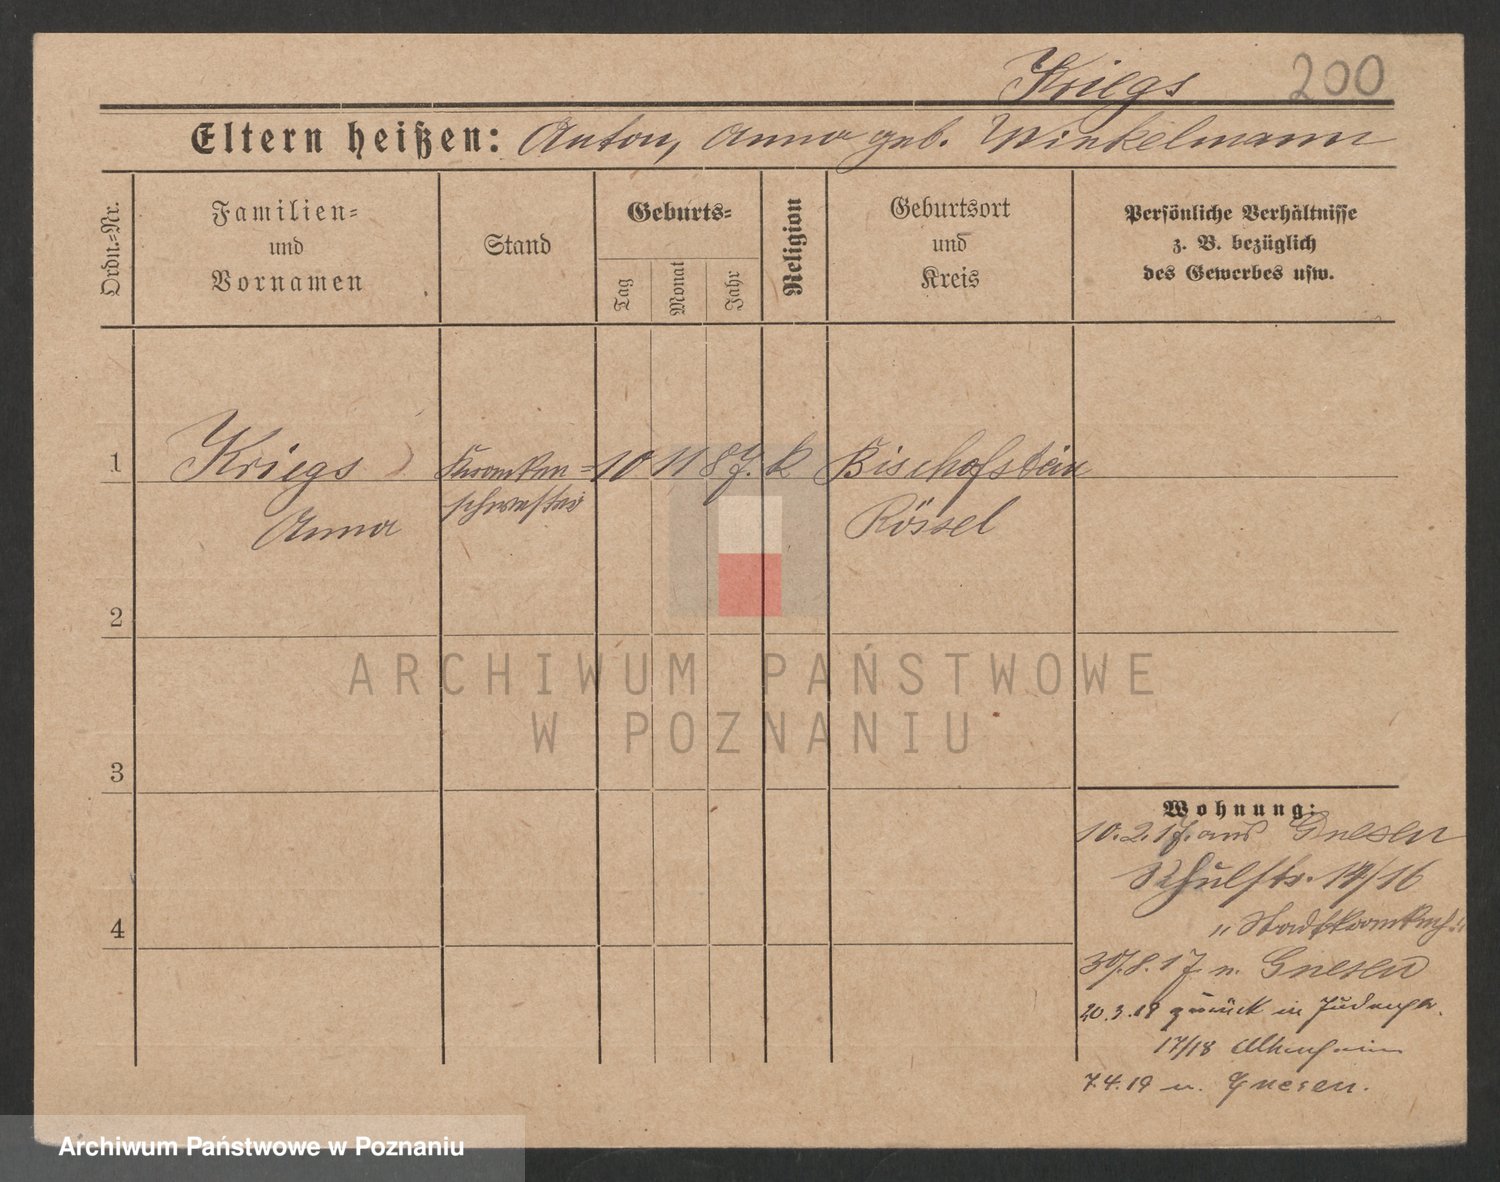 Kriegs 200
Eltern heißen: Anton, Anna geb. Winkelmann
Ordn.-Nr.
Familien-
und
Vornamen
Stand
Geburts-
Tag
Monat
Jahr
Religion
Geburtsort
und
Kreis
Persönliche Verhältnisse
z. B. bezüglich
des Gewerbes usw.
1 Kriegs Kranken= 10 11 87. k Bischofstein
schwester Rössel
Anna
2
ARCHIWUM PAŃSTWOWE
W POZNANIU
3
Wohnung:
10.2.17. aus Gnesen
Schulstr. 14/16
" Stadtkrankenh.
4
30.8.17 n. Gnesen
20.3.19 zurück in Judenstr.
17/18 Altenheim
7.4.19 n. Gnesen.
Archiwum Państwowe w Poznaniu